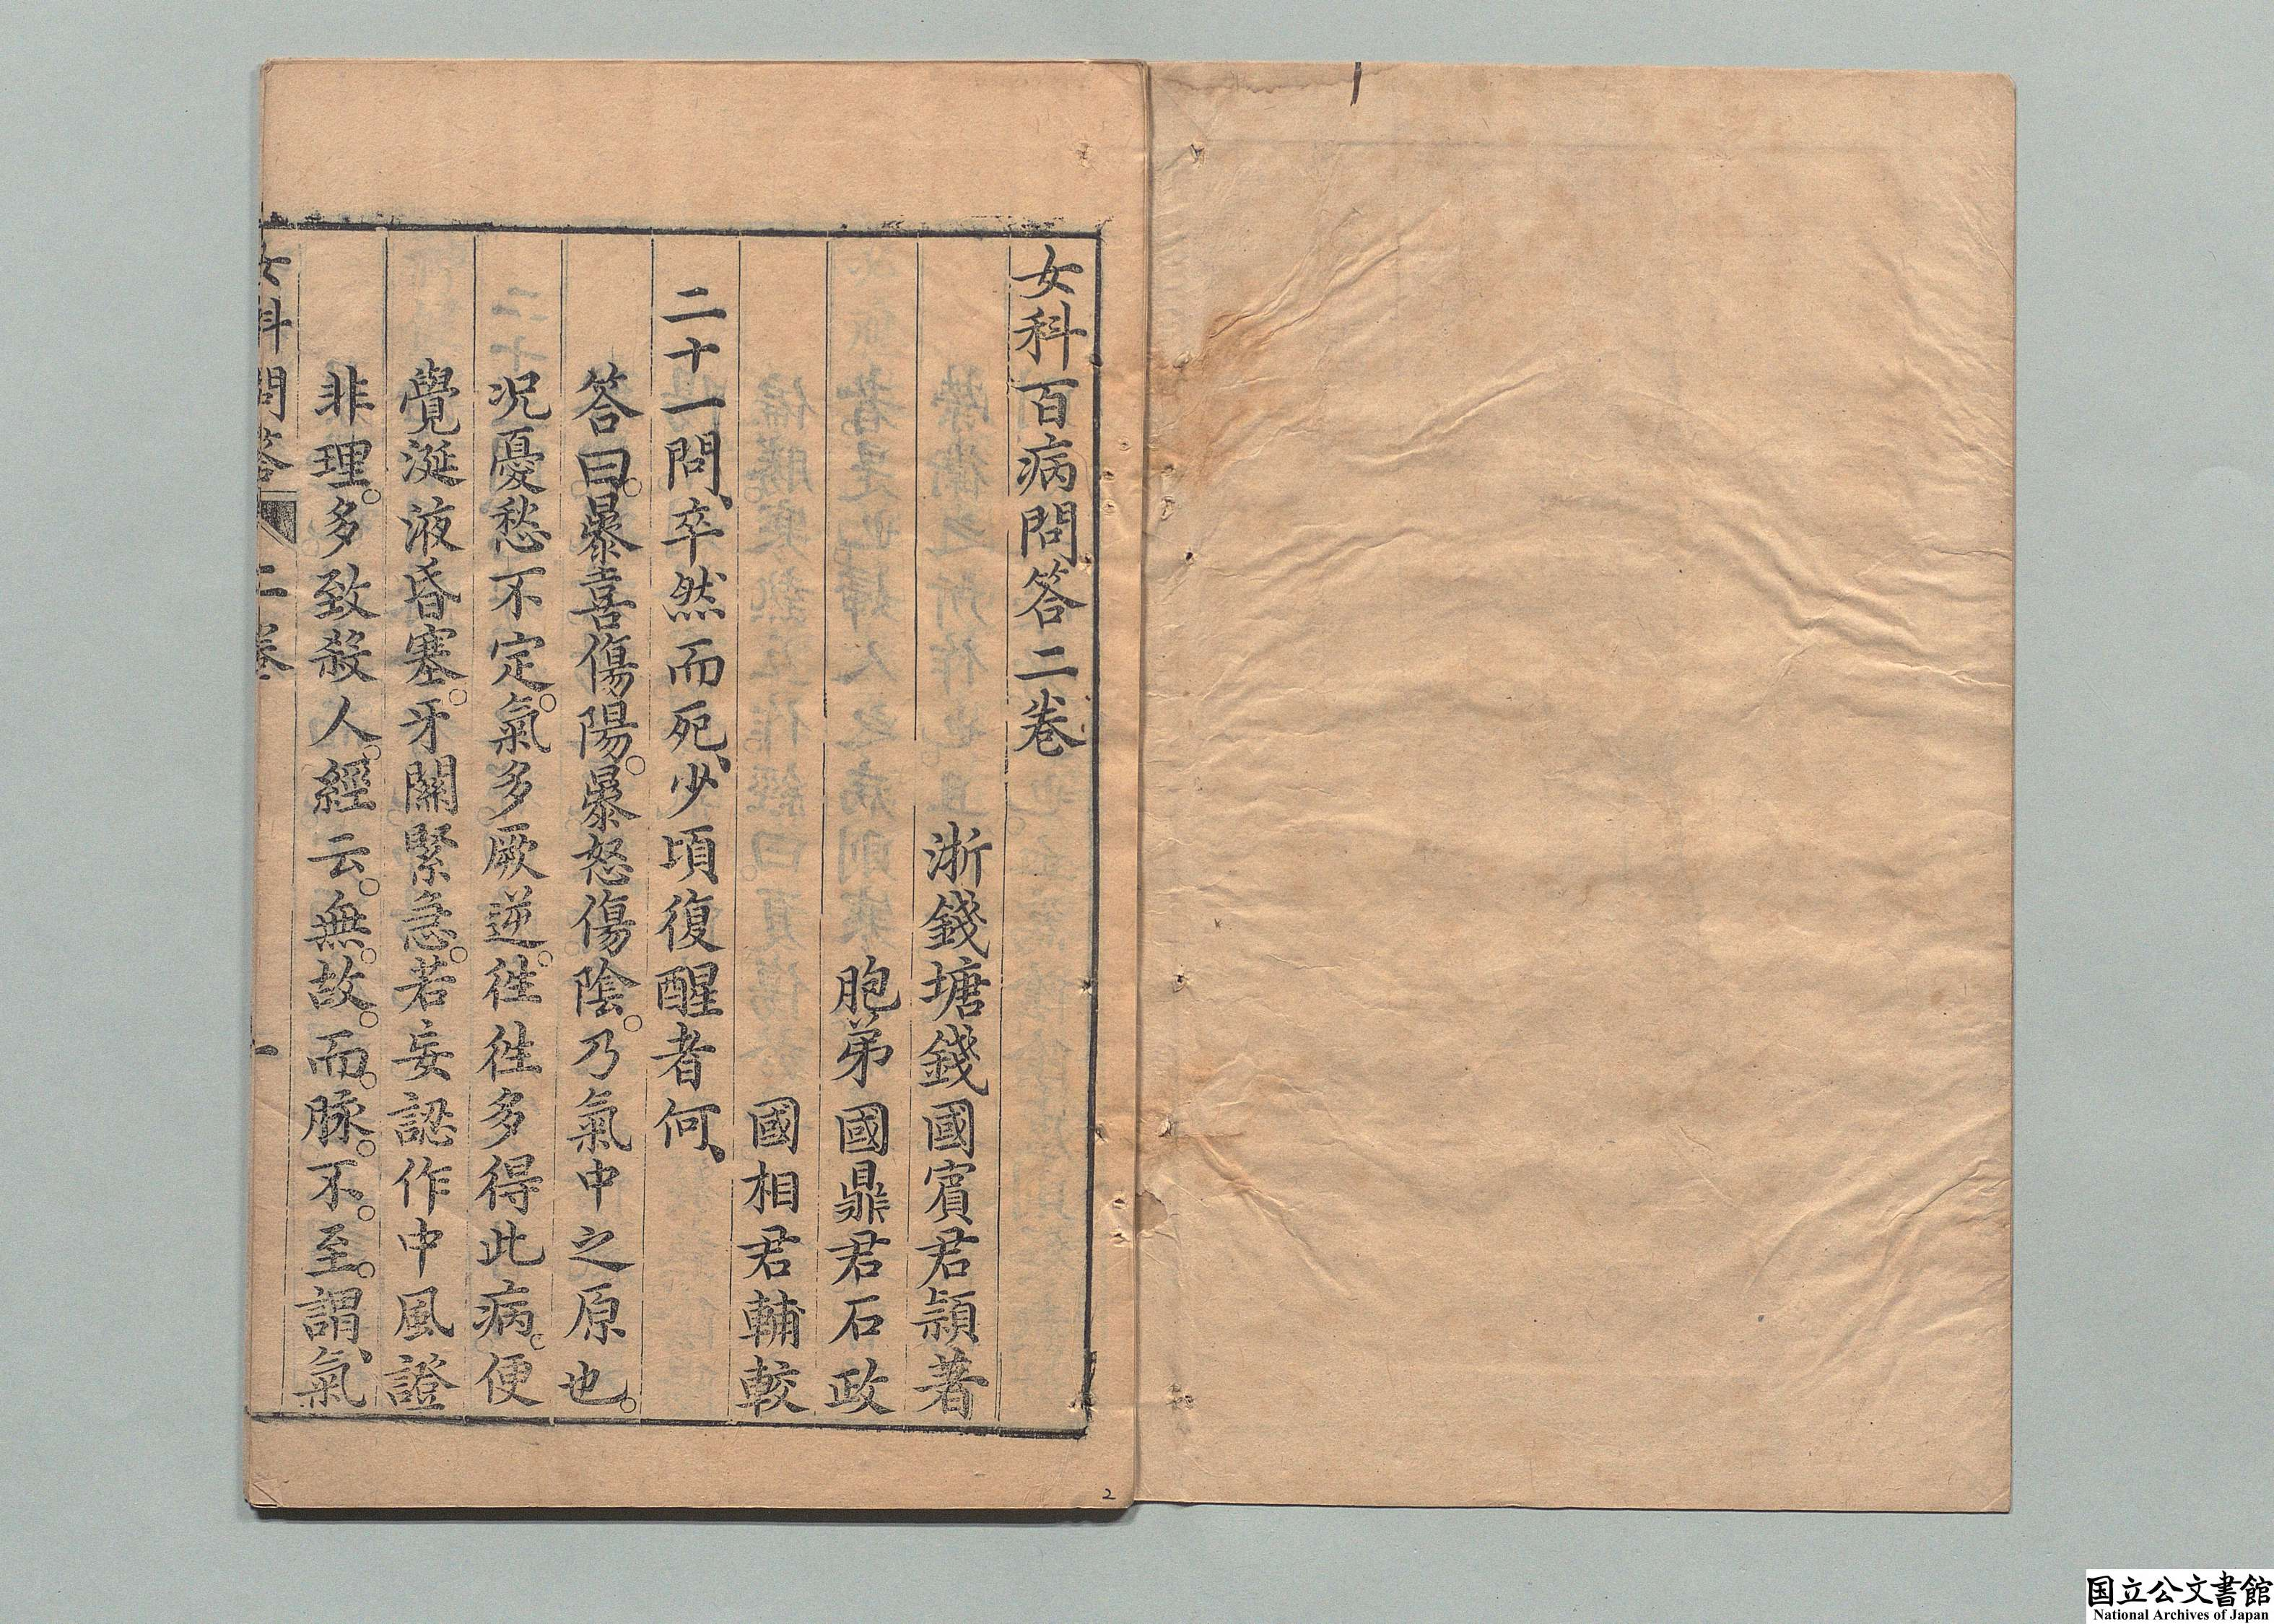 女科百病問答二卷
浙錢塘錢國賓君頴著
胞弟國鼎君石政
國相君輔較
二十一問、卒然而死、少頃復醒者何、
答曰。暴喜傷陽。暴怒傷陰。乃氣中之原也。
况憂愁不定。氣多厥逆。徃徃多得此病。便
覺涎液昏塞。牙關緊急。若妄認作中風證
非理。多致殺人。經云。無。故。而。脉。不。至。謂、氣
女科問答 二卷 一
2
国立公文書館
National Archives of Japan